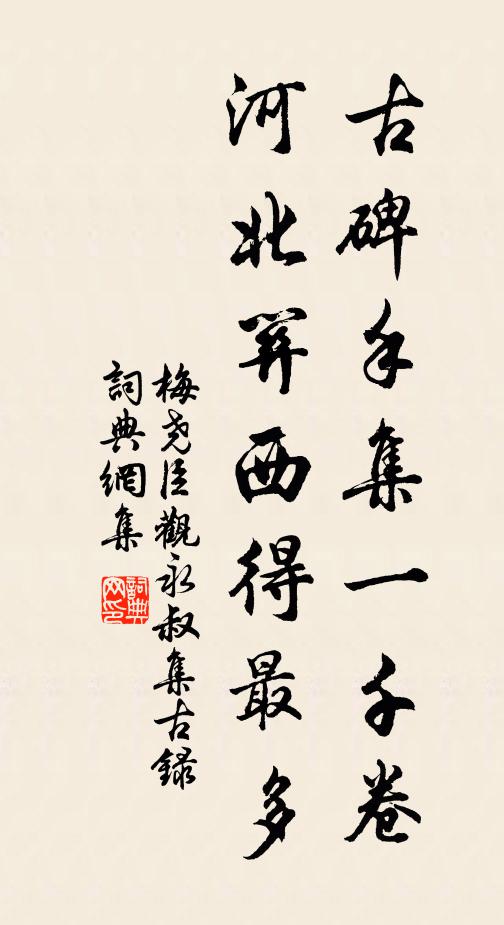 古碑手集一千卷
河北關西得最多
梅堯臣觀永叔集古錄
詞典網集
詞典網印